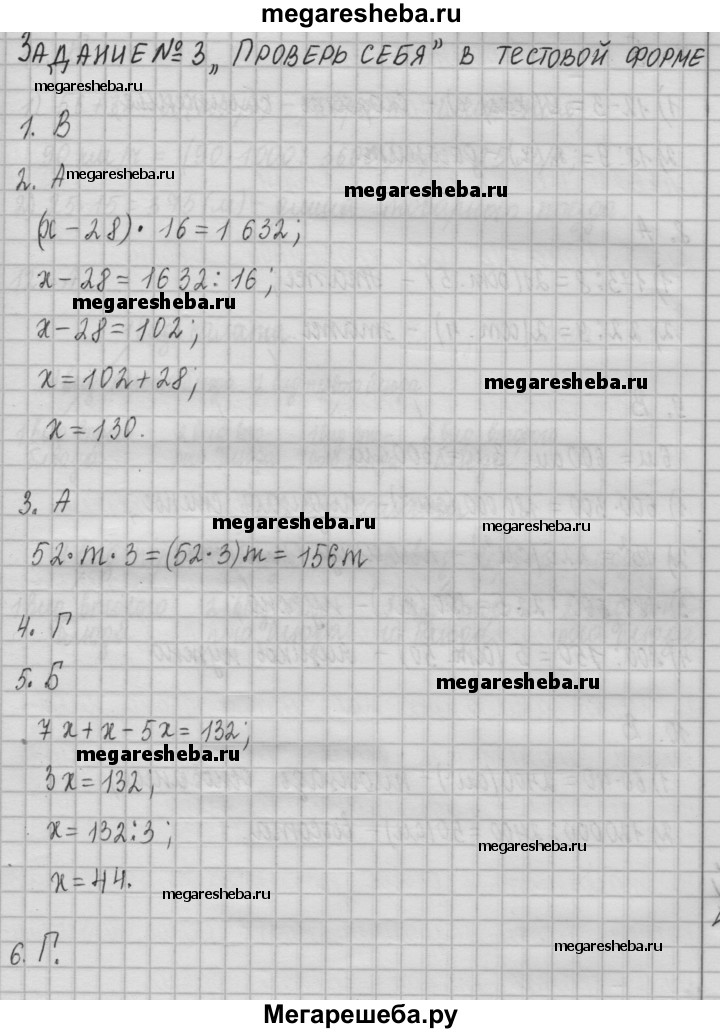 megaresheba.ru
ЗАДАНИЕ № 3 „ПРОВЕРЬ СЕБЯ” В ТЕСТОВОЙ ФОРМЕ
megaresheba.ru
1. В
2. А megaresheba.ru
megaresheba.ru
(x - 28) · 16 = 1 632;
x - 28 = 1632 : 16;
megaresheba.ru
x - 28 = 102;
x = 102 + 28;
megaresheba.ru
x = 130.
3. А
megaresheba.ru megaresheba.ru
52 · m · 3 = (52 · 3)m = 156m
4. Г
5. Б
megaresheba.ru
7x + x - 5x = 132;
megaresheba.ru
3x = 132;
x = 132 : 3;
megaresheba.ru
x = 44.
megaresheba.ru
6. Г.
megaresheba.ru
Мегарешеба.ру